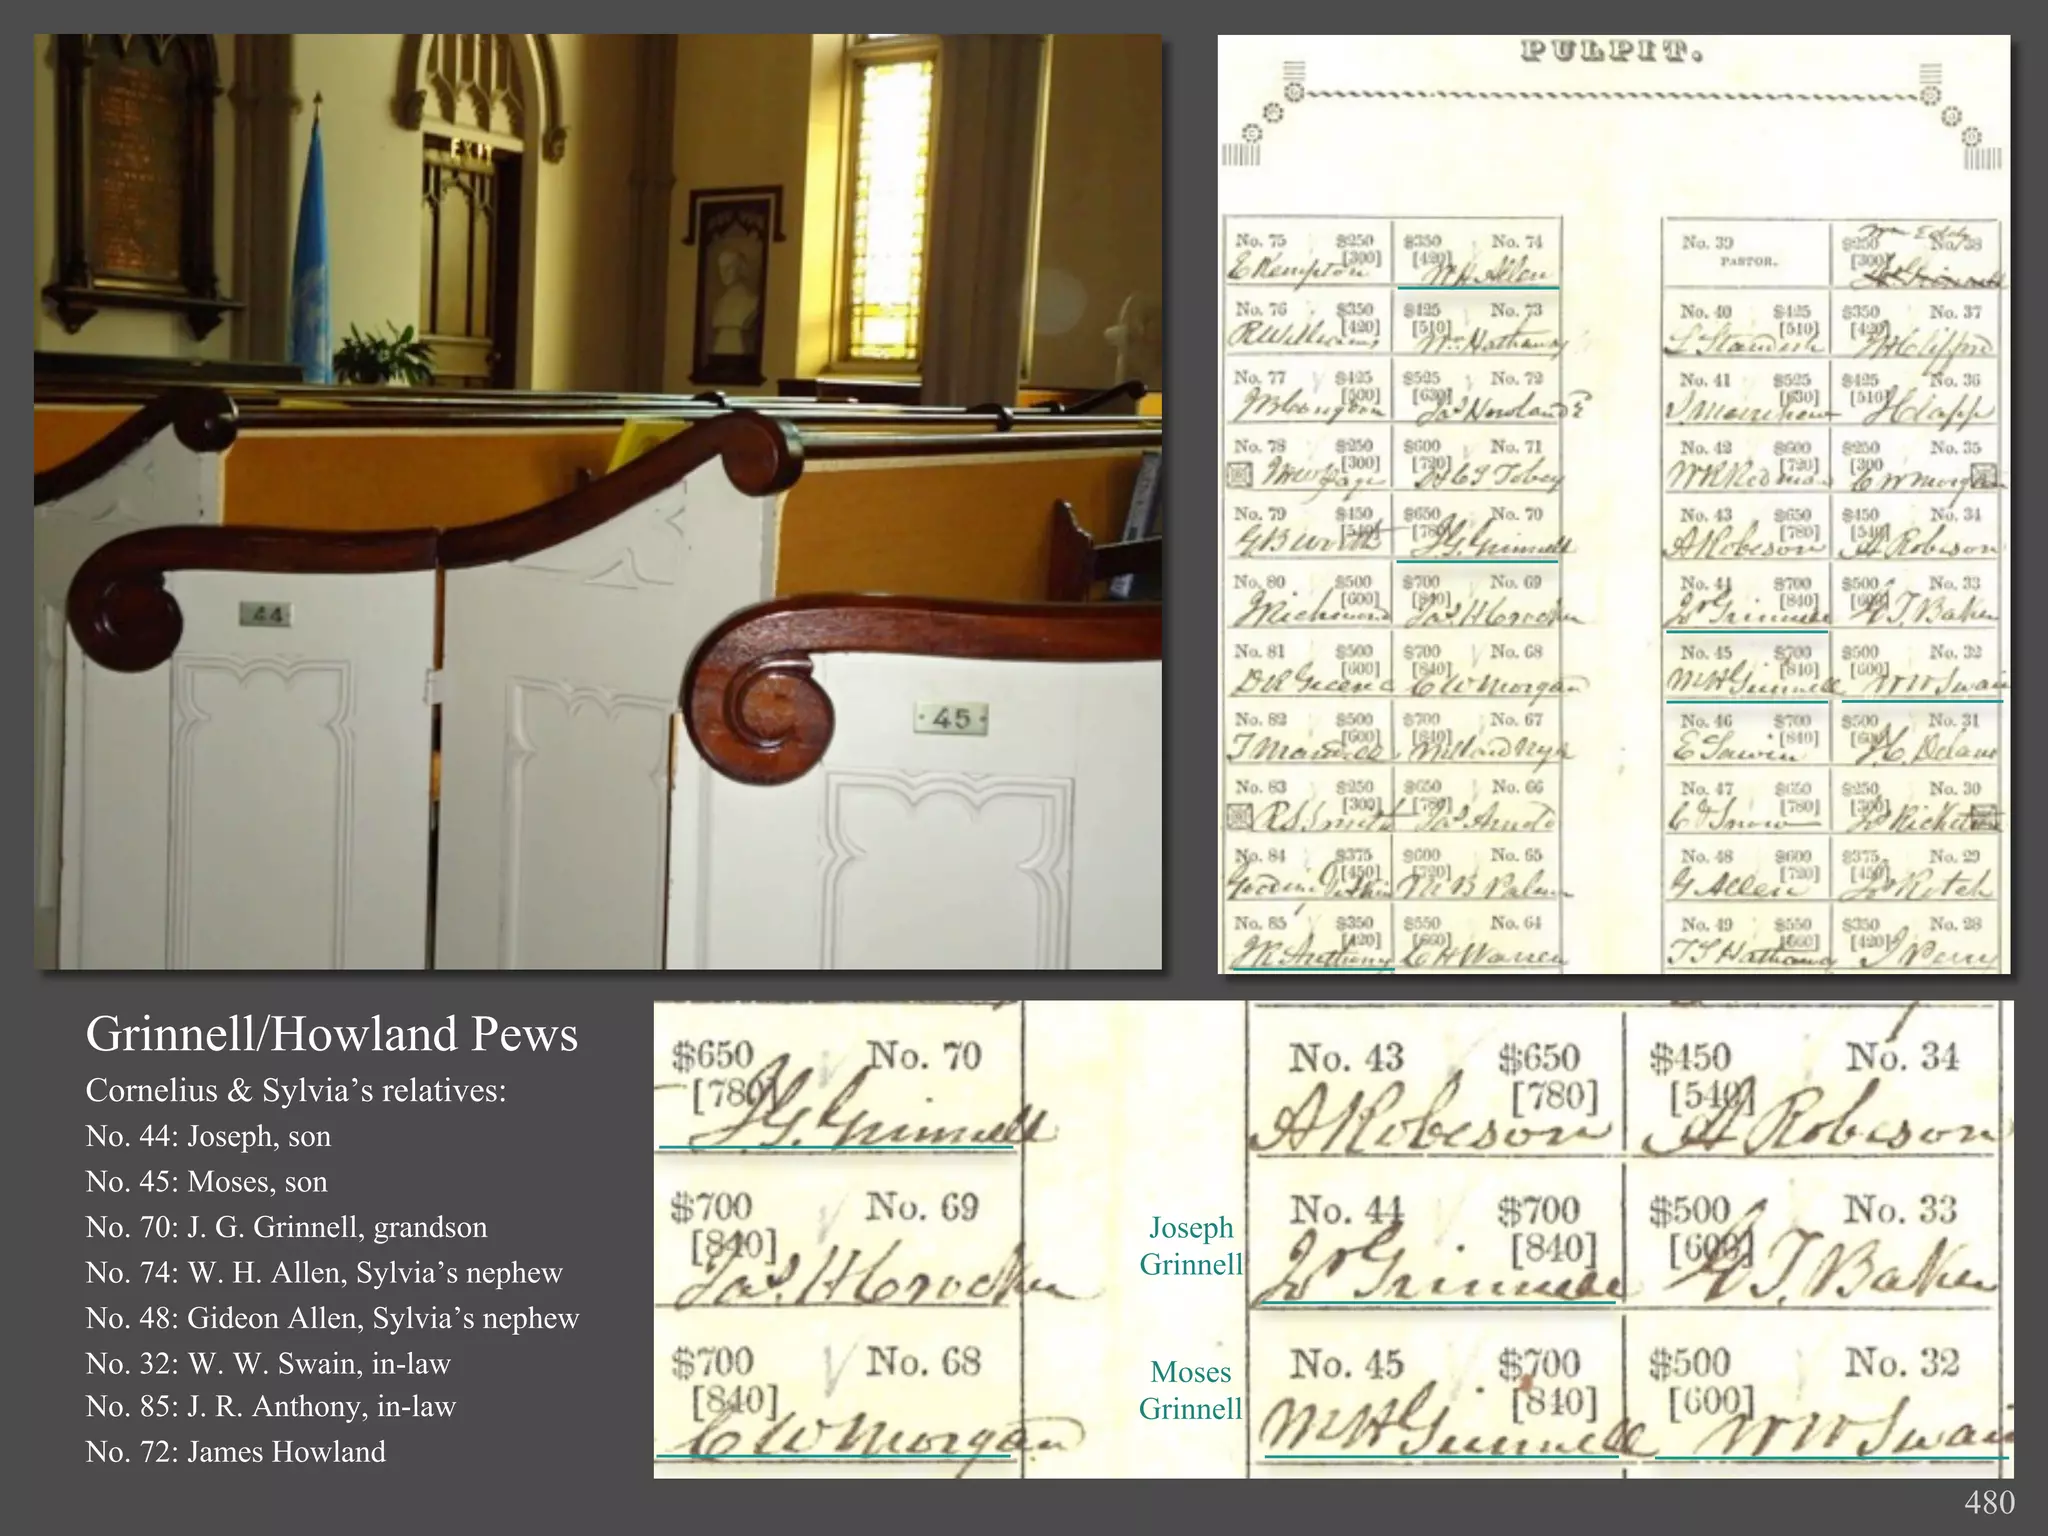 EXIT
44
45
PULPIT.
No. 75 $250 [300]
E Kempton
$350 [420] No. 74
W H Allen
No. 39
PASTOR.
Wm Eddy
$250 [300] No. 38
No. 76 $350 [420]
R Williams
$425 [510] No. 73
Wm Hathaway
No. 40 $425 [510]
L Standish
$350 [420] No. 37
No. 77 $425 [500]
J B Congdon
$525 [630] No. 72
Jas Howland 2
No. 41 $525 [630]
$425 [510] No. 36
Clapp
No. 78 $250 [300]
$600 [720] No. 71
Tobey
No. 42 $600 [720]
W R Rodman
$250 [300 No. 35
C W Morgan
No. 79 $450 [540]
G B Worth
$650 [780] No. 70
J G. Grinnell
No. 43 $650 [780]
A Robeson
$450 [540] No. 34
A Robeson
No. 80 $500 [600]
J Richmond
$700 [840] No. 69
Jas. H Crocker
No. 44 $700 [840]
Jos Grinnell
$500 [600] No. 33
T. Baker
No. 81 $500 [600]
D R Greene
$700 [840] No. 68
C W Morgan
No. 45 $700 [840]
M H Grinnell
$500 [600] No. 32
W W Swain
No. 82 $500 [600]
T Mandell
$700 [840] No. 67
Willard Nye
No. 46 $700 [840]
E Sawin
$500 [600] No. 31
Delano
No. 83 $250 [300]
R S Smith
$650 [780] No. 66
Jas Arnold
No. 47 $650 [780]
Snow
$250 [300] No. 30
Ricketson
No. 84 $375 [450]
$600 [720] No. 65
No. 48 $600 [720]
G Allen
$375 [450] No. 29
Rotch
No. 85 $350 [420]
J R Anthony
$550 [660] No. 64
C H Warren
No. 49 $550 [660]
T S Hathaway
$350 [420] No. 28
J Perry
Grinnell/Howland Pews
Cornelius & Sylvia’s relatives:
No. 44: Joseph, son
No. 45: Moses, son
No. 70: J. G. Grinnell, grandson
No. 74: W. H. Allen, Sylvia’s nephew
No. 48: Gideon Allen, Sylvia’s nephew
No. 32: W. W. Swain, in-law
No. 85: J. R. Anthony, in-law
No. 72: James Howland
$650 No. 70
[780]
J G. Grinnell
No. 43 $650
[780]
A Robeson
$450 No. 34
[540]
A Robeson
$700 No. 69
[840]
Jas. H Crocker
Joseph
Grinnell
No. 44 $700
[840]
Jos Grinnell
$500 No. 33
[600]
T. Baker
$700 No. 68
[840]
C W Morgan
Moses
Grinnell
No. 45 $700
[840]
M H Grinnell
$500 No. 32
[600]
W W Swain
480